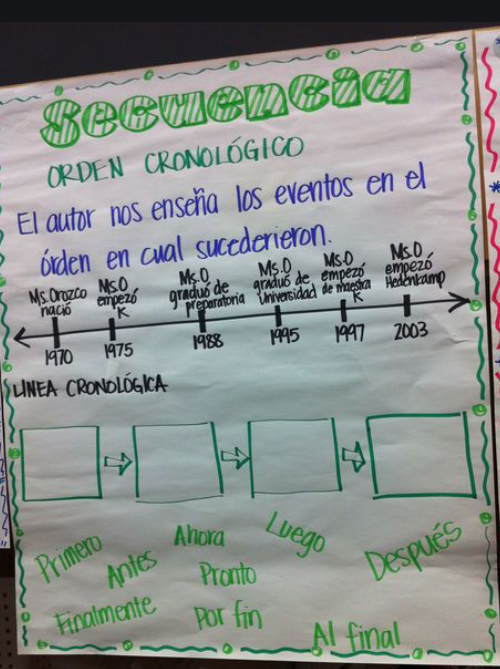 Secuencia
ORDEN CRONOLÓGICO
El autor nos enseña los eventos en el
órden en cual sucederieron.
Ms. Orozco nació
Ms.O empezó K
Ms.O graduó de preparatoria
Ms.O graduó de Universidad
Ms.O empezó de maestra K
Ms.O empezó Hedenkamp
1970 1975 1988 1995 1997 2003
LINEA CRONOLÓGICA
Primero Antes Ahora Luego Después
Pronto
Finalmente Por fin Al final